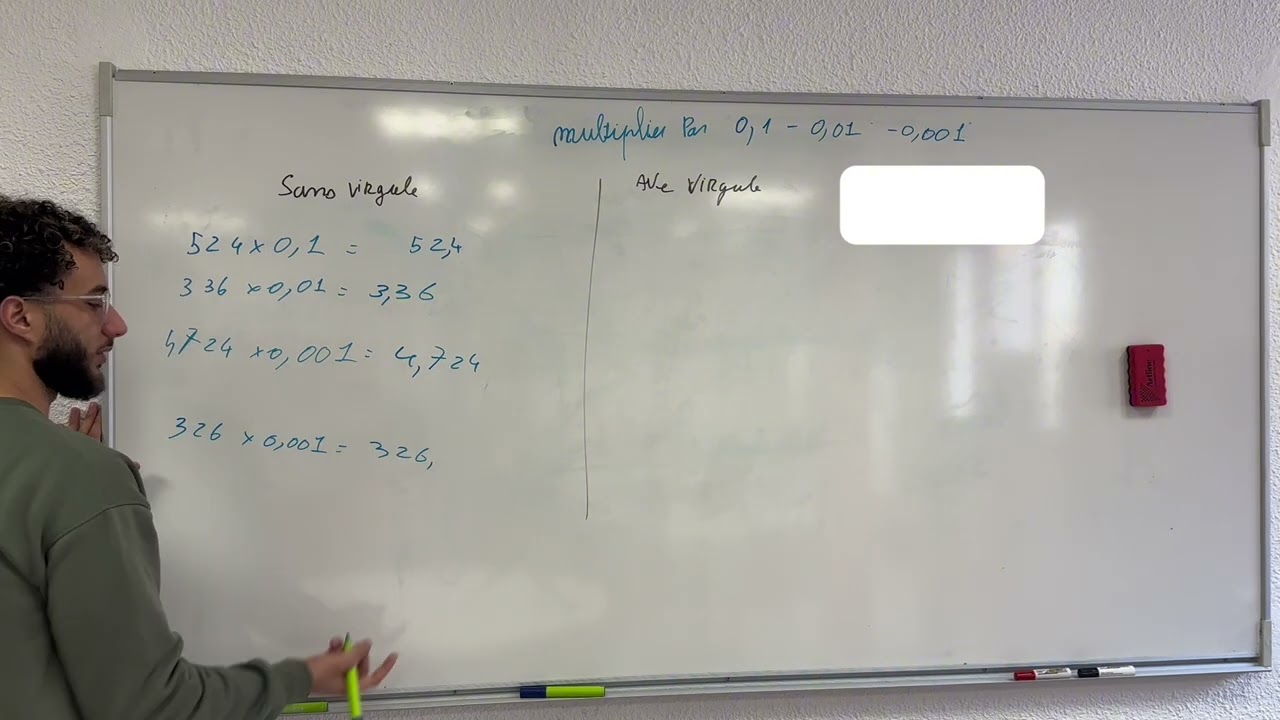 multiplier Par 0,1 - 0,01 - 0,001
Sans virgule
524 x 0,1 = 52,4
336 x 0,01 = 3,36
4724 x 0,001 = 4,724
326 x 0,001 = 326,
Ave virgule
Artline